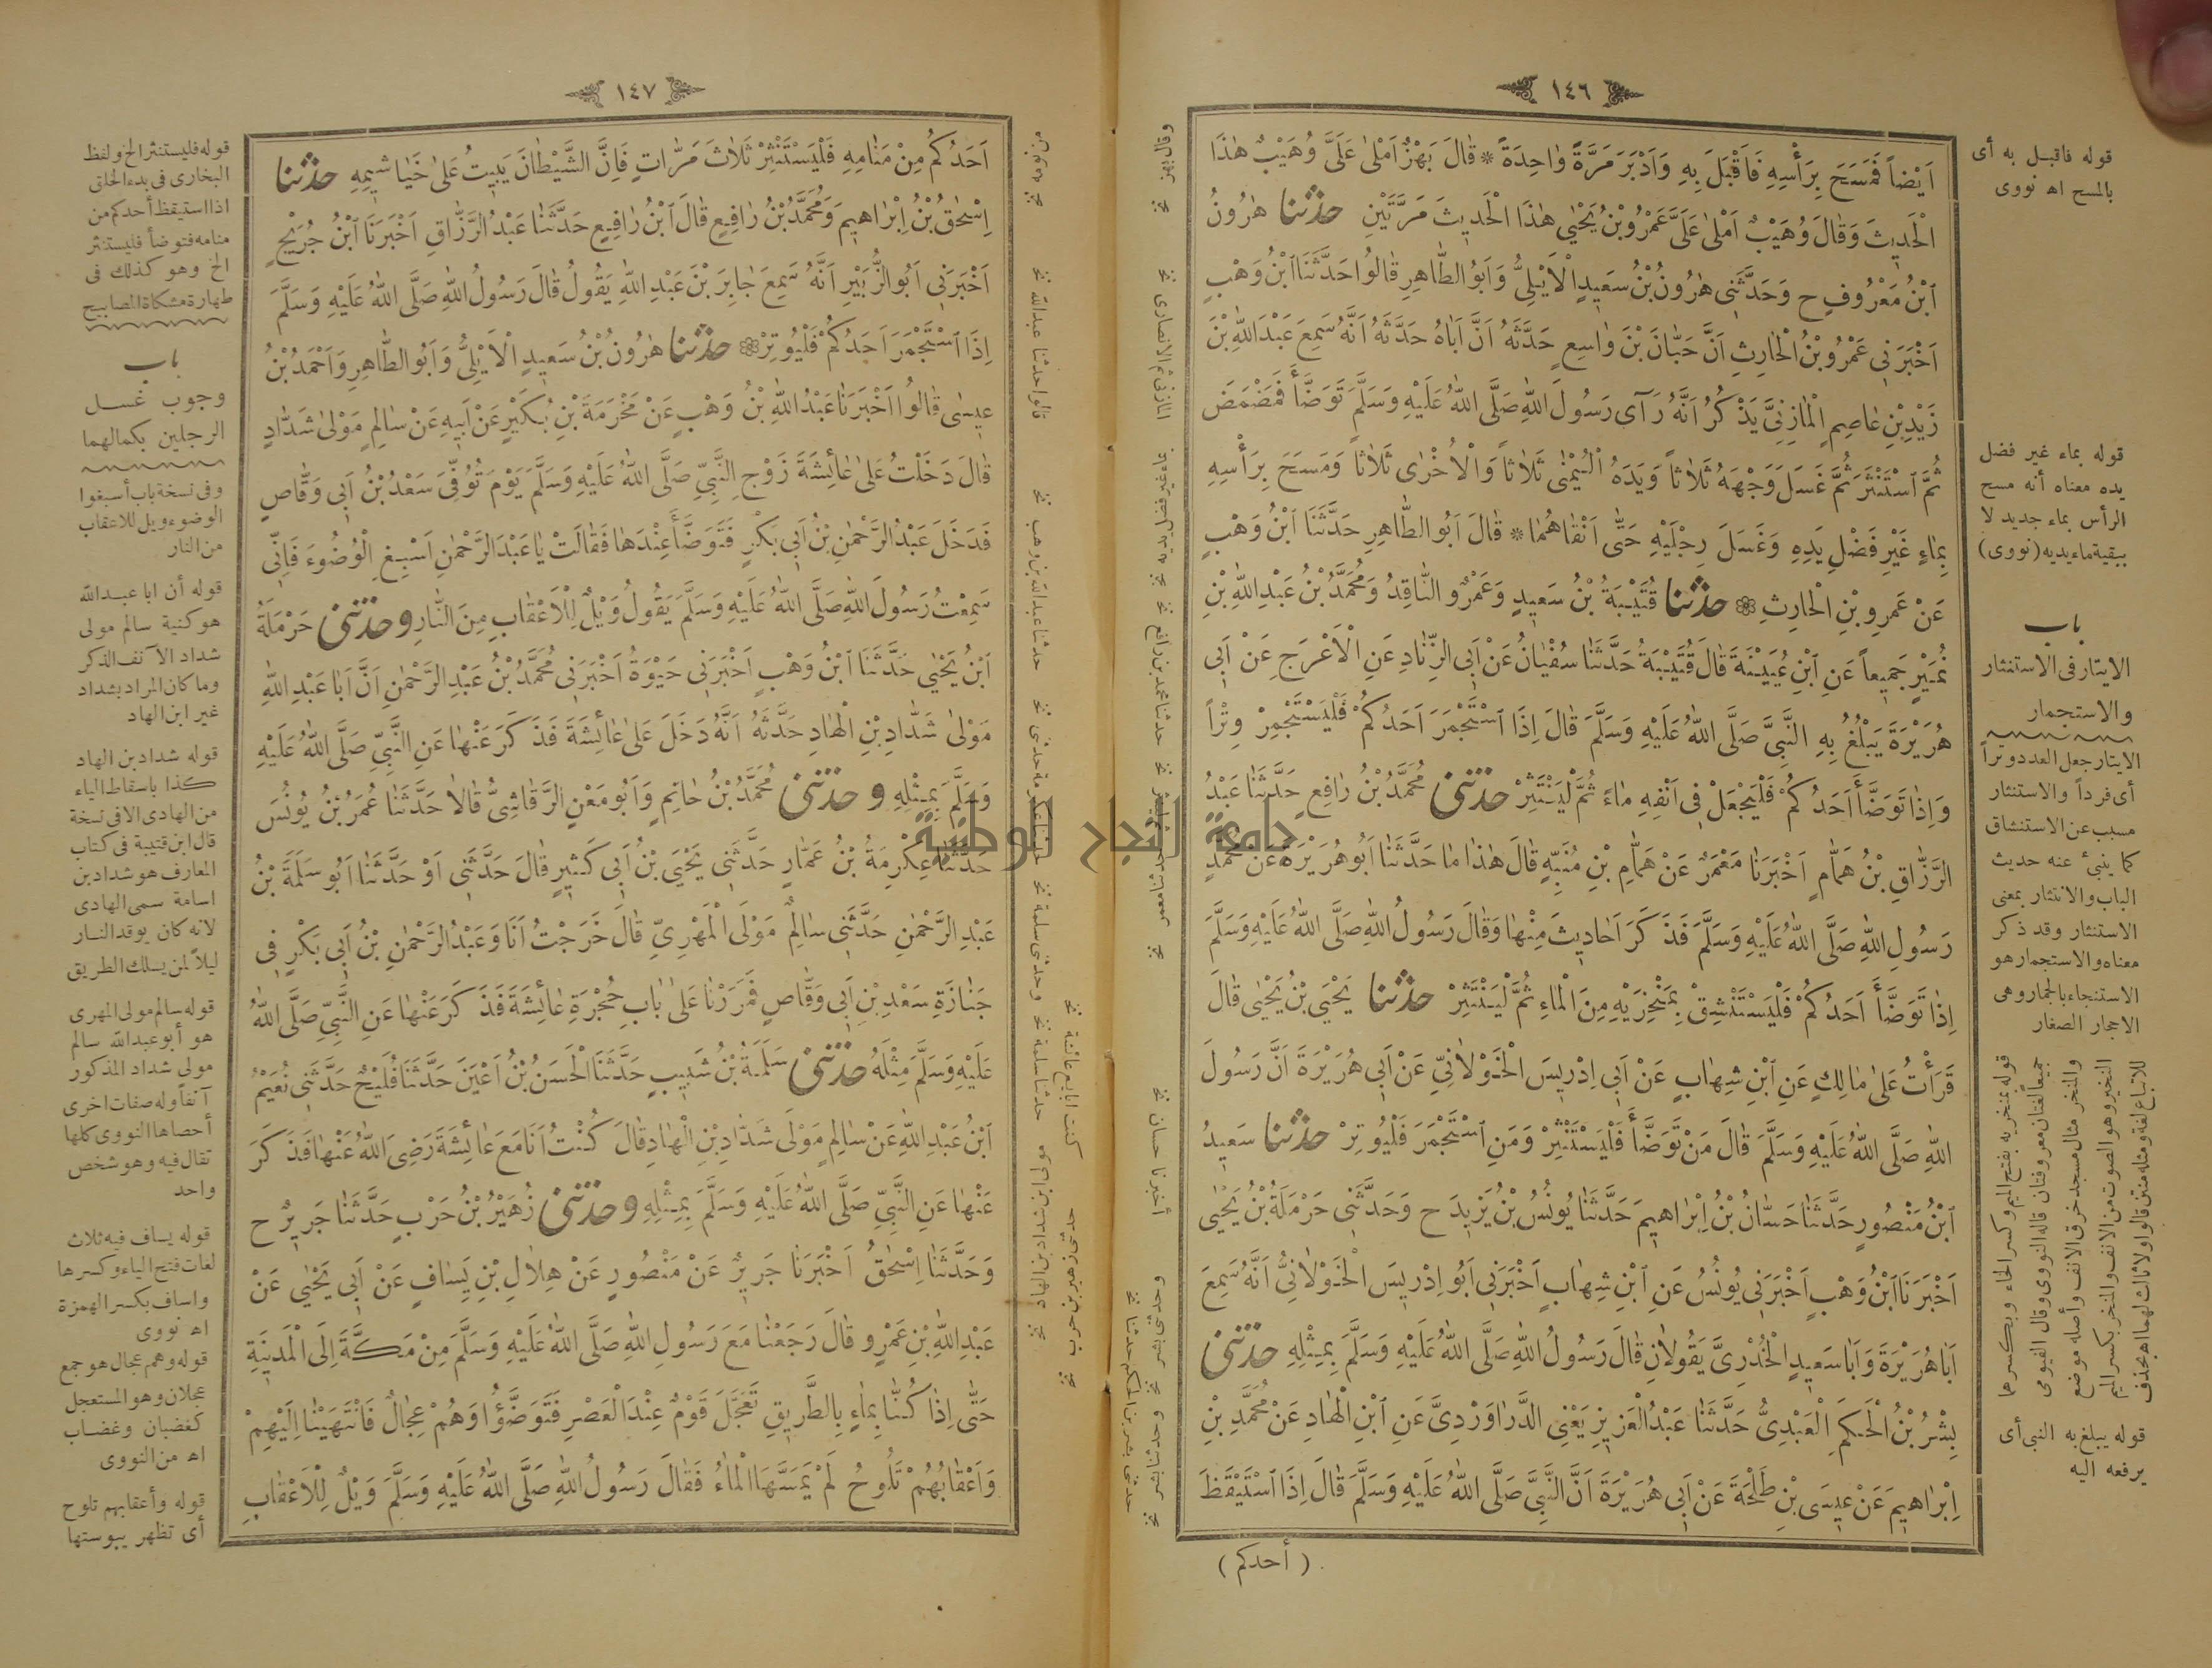 ١٤٦
اَيْضاً فَمَسَحَ بِرَأْسِهِ فَاَقْبَلَ بِهِ وَاَدْبَرَ مَرَّةً وٰاحِدَةً * قٰالَ بَهْزٌ اَمْلىٰ عَلَىَّ وُهَيْبٌ هٰذَا
الْحَديثَ وَقٰالَ وُهَيْبٌ اَمْلىٰ عَلَىَّ عَمْرُوبْنُ يَحْيٰى هٰذَا الْحَديثَ مَرَّتَيْنِ حدثنا هٰرُونُ
ابْنُ مَعْرُوفٍ ح وَحَدَّثَنى هٰرُونُ بْنُ سَعيدٍ الْاَيْلِىُّ وَاَبُو الطّٰاهِرِ قٰالُوا حَدَّثَنَا ابْنُ وَهْبٍ
اَخْبَرَنى عَمْرُو بْنُ الْحٰارِثِ اَنَّ حَبّٰانَ بْنَ وٰاسِعٍ حَدَّثَهُ اَنَّ اَبٰاهُ حَدَّثَهُ اَنَّهُ سَمِعَ عَبْدَ اللهِ بْنَ
زَيْدِ بْنِ عٰاصِمٍ الْمٰازِنِىَّ يَذْكُرُ اَنَّهُ رَآى رَسُولَ اللهِ صَلَّى اللهُ عَلَيْهِ وَسَلَّمَ تَوَضَّأَ فَمَضْمَضَ
ثُمَّ اسْتَنْثَرَ ثُمَّ غَسَلَ وَجْهَهُ ثَلاٰثاً وَيَدَهُ الْيُمْنٰى ثَلاٰثاً وَالْاُخْرٰى ثَلاٰثاً وَمَسَحَ بِرَأْسِهِ
بِمٰاءٍ غَيْرِ فَضْلِ يَدِهِ وَغَسَلَ رِجْلَيْهِ حَتّٰى اَنْقٰاهُمٰا * قٰالَ اَبُو الطّٰاهِرِ حَدَّثَنَا ابْنُ وَهْبٍ
عَنْ عَمْرِو بْنِ الْحٰارِثِ حدثنا قُتَيْبَةُ بْنُ سَعيدٍ وَعَمْرٌو النّٰاقِدُ وَمُحَمَّدُ بْنُ عَبْدِ اللهِ بْنِ
نُمَيْرٍ جَميعاً عَنِ ابْنِ عُيَيْنَةَ قٰالَ قُتَيْبَةُ حَدَّثَنٰا سُفْيٰانُ عَنْ اَبِى الزِّنٰادِ عَنِ الْاَعْرَجِ عَنْ اَبى
هُرَيْرَةَ يَبْلُغُ بِهِ النَّبِىَّ صَلَّى اللهُ عَلَيْهِ وَسَلَّمَ قٰالَ اِذَا اسْتَجْمَرَ اَحَدُكُمْ فَلْيَسْتَجْمِرْ وِتْراً
وَاِذٰا تَوَضَّأَ اَحَدُكُمْ فَلْيَجْعَلْ فى اَنْفِهِ مٰاءً ثُمَّ لْيَنْتَثِرْ حدثنى مُحَمَّدُ بْنُ رٰافِعٍ حَدَّثَنٰا عَبْدُ
الرَّزّٰاقِ بْنُ هَمّٰامٍ اَخْبَرَنٰا مَعْمَرٌ عَنْ هَمّٰامِ بْنِ مُنَبِّهٍ قٰالَ هٰذٰا مٰا حَدَّثَنٰا اَبُو هُرَيْرَةَ عَنْ مُحَمَّدٍ
رَسُولِ اللهِ صَلَّى اللهُ عَلَيْهِ وَسَلَّمَ فَذَكَرَ اَحٰاديثَ مِنْهٰا وَقٰالَ رَسُولُ اللهِ صَلَّى اللهُ عَلَيْهِ وَسَلَّمَ
اِذٰا تَوَضَّأَ اَحَدُكُمْ فَلْيَسْتَنْشِقْ بِمَنْخِرَيْهِ مِنَ الْمٰاءِ ثُمَّ لْيَنْتَثِرْ حدثنا يَحْيَى بْنُ يَحْيٰى قٰالَ
قَرَأْتُ عَلىٰ مٰالِكٍ عَنِ ابْنِ شِهٰابٍ عَنْ اَبى اِدْريسَ الْخَوْلاٰنِىِّ عَنْ اَبى هُرَيْرَةَ اَنَّ رَسُولَ
اللهِ صَلَّى اللهُ عَلَيْهِ وَسَلَّمَ قٰالَ مَنْ تَوَضَّأَ فَلْيَسْتَنْثِرْ وَمَنِ اسْتَجْمَرَ فَلْيُوتِرْ حدثنا سَعيدُ
ابْنُ مَنْصُورٍ حَدَّثَنٰا حَسّٰانُ بْنُ اِبْرٰاهيمَ حَدَّثَنٰا يُونُسُ بْنُ يَزيدَ ح وَحَدَّثَنى حَرْمَلَةُ بْنُ يَحْيٰى
اَخْبَرَنَا ابْنُ وَهْبٍ اَخْبَرَنى يُونُسُ عَنِ ابْنِ شِهٰابٍ اَخْبَرَنى اَبُو اِدْريسَ الْخَوْلاٰنِىُّ اَنَّهُ سَمِعَ
اَبٰا هُرَيْرَةَ وَاَبٰا سَعيدٍ الْخُدْرِىَّ يَقُولاٰنِ قٰالَ رَسُولُ اللهِ صَلَّى اللهُ عَلَيْهِ وَسَلَّمَ بِمِثْلِهِ حدثنى
بِشْرُ بْنُ الْحَكَمِ الْعَبْدِىُّ حَدَّثَنٰا عَبْدُ الْعَزيزِ يَعْنِى الدَّرٰاوَرْدِىَّ عَنِ ابْنِ الْهٰادِ عَنْ مُحَمَّدِ بْنِ
اِبْرٰاهيمَ عَنْ عيسَى بْنِ طَلْحَةَ عَنْ اَبى هُرَيْرَةَ اَنَّ النَّبِىَّ صَلَّى اللهُ عَلَيْهِ وَسَلَّمَ قٰالَ اِذَا اسْتَيْقَظَ
( أحدكم )
قوله فاقبل به أى
بالمسح اه نووى
قوله بماء غير فضل
يده معناه أنه مسح
الرأس بماء جديد لا
ببقية ماء يديه (نووى)
باب
الايتار فى الاستنثار
والاستجمار
الايتار جعل العدد وتراً
أى فرداً والاستنثار
مسبب عن الاستنشاق
كما ينبئ عنه حديث
الباب والانتثار بمعنى
الاستنثار وقد ذكر
معناه والاستجمار هو
الاستنجاء بالجمار وهى
الاحجار الصغار
قوله بمنخريه بفتح الميم وكسر الخاء وبكسرهما
جميعاً لغتان معروفتان قاله النووى وقال الفيومى
والمنخر مثال مسجد خرق الانف وأصله موضع
النخير وهو الصوت من الانف والمنخر بكسر الميم
للاتباع لغة ومثله منتن قالوا ولا ثالث لهما اه بحذف
قوله يبلغ به النبى أى
يرفعه اليه
وقال بهز
المازنى ثم الانصارى
بماء غير فضل يديه
حدثنا محمد بن رافع
حدثنا معمر
أخبرنا حسان
وحدثنى بشر
وحدثنا بشر
حدثنى بشر بن الحكم حدثنا
جامعة النجاح الوطنية
١٤٧
اَحَدُكُمْ مِنْ مَنٰامِهِ فَلْيَسْتَنْثِرْ ثَلاٰثَ مَرّٰاتٍ فَاِنَّ الشَّيْطٰانَ يَبيتُ عَلىٰ خَيٰاشيمِهِ حدثنا
اِسْحٰقُ بْنُ اِبْرٰاهيمَ وَمُحَمَّدُ بْنُ رٰافِعٍ قٰالَ ابْنُ رٰافِعٍ حَدَّثَنٰا عَبْدُ الرَّزّٰاقِ اَخْبَرَنَا ابْنُ جُرَيْجٍ
اَخْبَرَنى اَبُو الزُّبَيْرِ اَنَّهُ سَمِعَ جٰابِرَ بْنَ عَبْدِ اللهِ يَقُولُ قٰالَ رَسُولُ اللهِ صَلَّى اللهُ عَلَيْهِ وَسَلَّمَ
اِذَا اسْتَجْمَرَ اَحَدُكُمْ فَلْيُوتِرْ حدثنا هٰرُونُ بْنُ سَعيدٍ الْاَيْلِىُّ وَاَبُو الطّٰاهِرِ وَاَحْمَدُ بْنُ
عيسٰى قٰالُوا اَخْبَرَنٰا عَبْدُ اللهِ بْنُ وَهْبٍ عَنْ مَخْرَمَةَ بْنِ بُكَيْرٍ عَنْ اَبيهِ عَنْ سٰالِمٍ مَوْلىٰ شَدّٰادٍ
قٰالَ دَخَلْتُ عَلىٰ عٰائِشَةَ زَوْجِ النَّبِىِّ صَلَّى اللهُ عَلَيْهِ وَسَلَّمَ يَوْمَ تُوُفِّىَ سَعْدُ بْنُ اَبى وَقّٰاصٍ
فَدَخَلَ عَبْدُ الرَّحْمٰنِ بْنُ اَبى بَكْرٍ فَتَوَضَّأَ عِنْدَهٰا فَقٰالَتْ يٰا عَبْدَ الرَّحْمٰنِ اَسْبِغِ الْوُضُوءَ فَاِنّى
سَمِعْتُ رَسُولَ اللهِ صَلَّى اللهُ عَلَيْهِ وَسَلَّمَ يَقُولُ وَيْلٌ لِلْاَعْقٰابِ مِنَ النّٰارِ وحدثنى حَرْمَلَةُ
ابْنُ يَحْيٰى حَدَّثَنَا ابْنُ وَهْبٍ اَخْبَرَنى حَيْوَةُ اَخْبَرَنى مُحَمَّدُ بْنُ عَبْدِ الرَّحْمٰنِ اَنَّ اَبٰا عَبْدِ اللهِ
مَوْلىٰ شَدّٰادِ بْنِ الْهٰادِ حَدَّثَهُ اَنَّهُ دَخَلَ عَلىٰ عٰائِشَةَ فَذَكَرَ عَنْهٰا عَنِ النَّبِىِّ صَلَّى اللهُ عَلَيْهِ
وَسَلَّمَ بِمِثْلِهِ وحدثنى مُحَمَّدُ بْنُ حٰاتِمٍ وَاَبُو مَعْنٍ الرَّقٰاشِىُّ قٰالاٰ حَدَّثَنٰا عُمَرُ بْنُ يُونُسَ
حَدَّثَنٰا عِكْرِمَةُ بْنُ عَمّٰارٍ حَدَّثَنى يَحْيَى بْنُ اَبى كَثيرٍ قٰالَ حَدَّثَنى اَوْ حَدَّثَنٰا اَبُو سَلَمَةَ بْنُ
عَبْدِ الرَّحْمٰنِ حَدَّثَنى سٰالِمٌ مَوْلَى الْمَهْرِىِّ قٰالَ خَرَجْتُ اَنَا وَعَبْدُ الرَّحْمٰنِ بْنُ اَبى بَكْرٍ فى
جَنٰازَةِ سَعْدِ بْنِ اَبى وَقّٰاصٍ فَمَرَرْنٰا عَلىٰ بٰابِ حُجْرَةِ عٰائِشَةَ فَذَكَرَ عَنْهٰا عَنِ النَّبِىِّ صَلَّى اللهُ
عَلَيْهِ وَسَلَّمَ مِثْلَهُ حدثنى سَلَمَةُ بْنُ شَبيبٍ حَدَّثَنَا الْحَسَنُ بْنُ اَعْيَنَ حَدَّثَنٰا فُلَيْحٌ حَدَّثَنى نُعَيْمُ
ابْنُ عَبْدِ اللهِ عَنْ سٰالِمٍ مَوْلىٰ شَدّٰادِ بْنِ الْهٰادِ قٰالَ كُنْتُ اَنَا مَعَ عٰائِشَةَ رَضِىَ اللهُ عَنْهٰا فَذَكَرَ
عَنْهٰا عَنِ النَّبِىِّ صَلَّى اللهُ عَلَيْهِ وَسَلَّمَ بِمِثْلِهِ وحدثنى زُهَيْرُ بْنُ حَرْبٍ حَدَّثَنٰا جَريرٌ ح
وَحَدَّثَنٰا اِسْحٰقُ اَخْبَرَنٰا جَريرٌ عَنْ مَنْصُورٍ عَنْ هِلاٰلِ بْنِ يِسٰافٍ عَنْ اَبى يَحْيٰى عَنْ
عَبْدِ اللهِ بْنِ عَمْرٍو قٰالَ رَجَعْنٰا مَعَ رَسُولِ اللهِ صَلَّى اللهُ عَلَيْهِ وَسَلَّمَ مِنْ مَكَّةَ اِلَى الْمَدينَةِ
حَتّٰى اِذٰا كُنّٰا بِمٰاءٍ بِالطَّريقِ تَعَجَّلَ قَوْمٌ عِنْدَ الْعَصْرِ فَتَوَضَّؤُا وَهُمْ عِجٰالٌ فَانْتَهَيْنٰا اِلَيْهِمْ
وَاَعْقٰابُهُمْ تَلُوحُ لَمْ يَمَسَّهَا الْمٰاءُ فَقٰالَ رَسُولُ اللهِ صَلَّى اللهُ عَلَيْهِ وَسَلَّمَ وَيْلٌ لِلْاَعْقٰابِ
قوله فليستنثر الخ ولفظ
البخارى فى بدء الخلق
اذا استيقظ أحدكم من
منامه فتوضأ فليستنثر
الخ وهو كذلك فى
طهارة مشكاة المصابيح
باب
وجوب غسل
الرجلين بكمالهما
وفى نسخة باب أسبغوا
الوضوء ويل للاعقاب
من النار
قوله أن ابا عبدالله
هو كنية سالم مولى
شداد الآنف الذكر
وما كان المراد بشداد
غير ابن الهاد
قوله شداد بن الهاد
كذا باسقاط الياء
من الهادى الا فى نسخة
قال ابن قتيبة فى كتاب
المعارف هو شداد بن
اسامة سمى الهادى
لانه كان يوقد النار
ليلاً لمن يسلك الطريق
قوله سالم مولى المهرى
هو أبو عبدالله سالم
مولى شداد المذكور
آنفاً وله صفات اخرى
أحصاها النووى كلها
تقال فيه وهو شخص
واحد
قوله يساف فيه ثلاث
لغات فتح الياء وكسرها
واساف بكسر الهمزة
اه نووى
قوله وهم عجال هو جمع
عجلان وهو المستعجل
كغضبان وغضاب
اه من النووى
قوله وأعقابهم تلوح
أى تظهر يبوستها
قالوا حدثنا عبدالله
حدثنا عبدالله بن وهب
وحدثنى سلمة
حدثنا سلمة
كنت ابايع عائشة
حدثنى زهير بن حرب